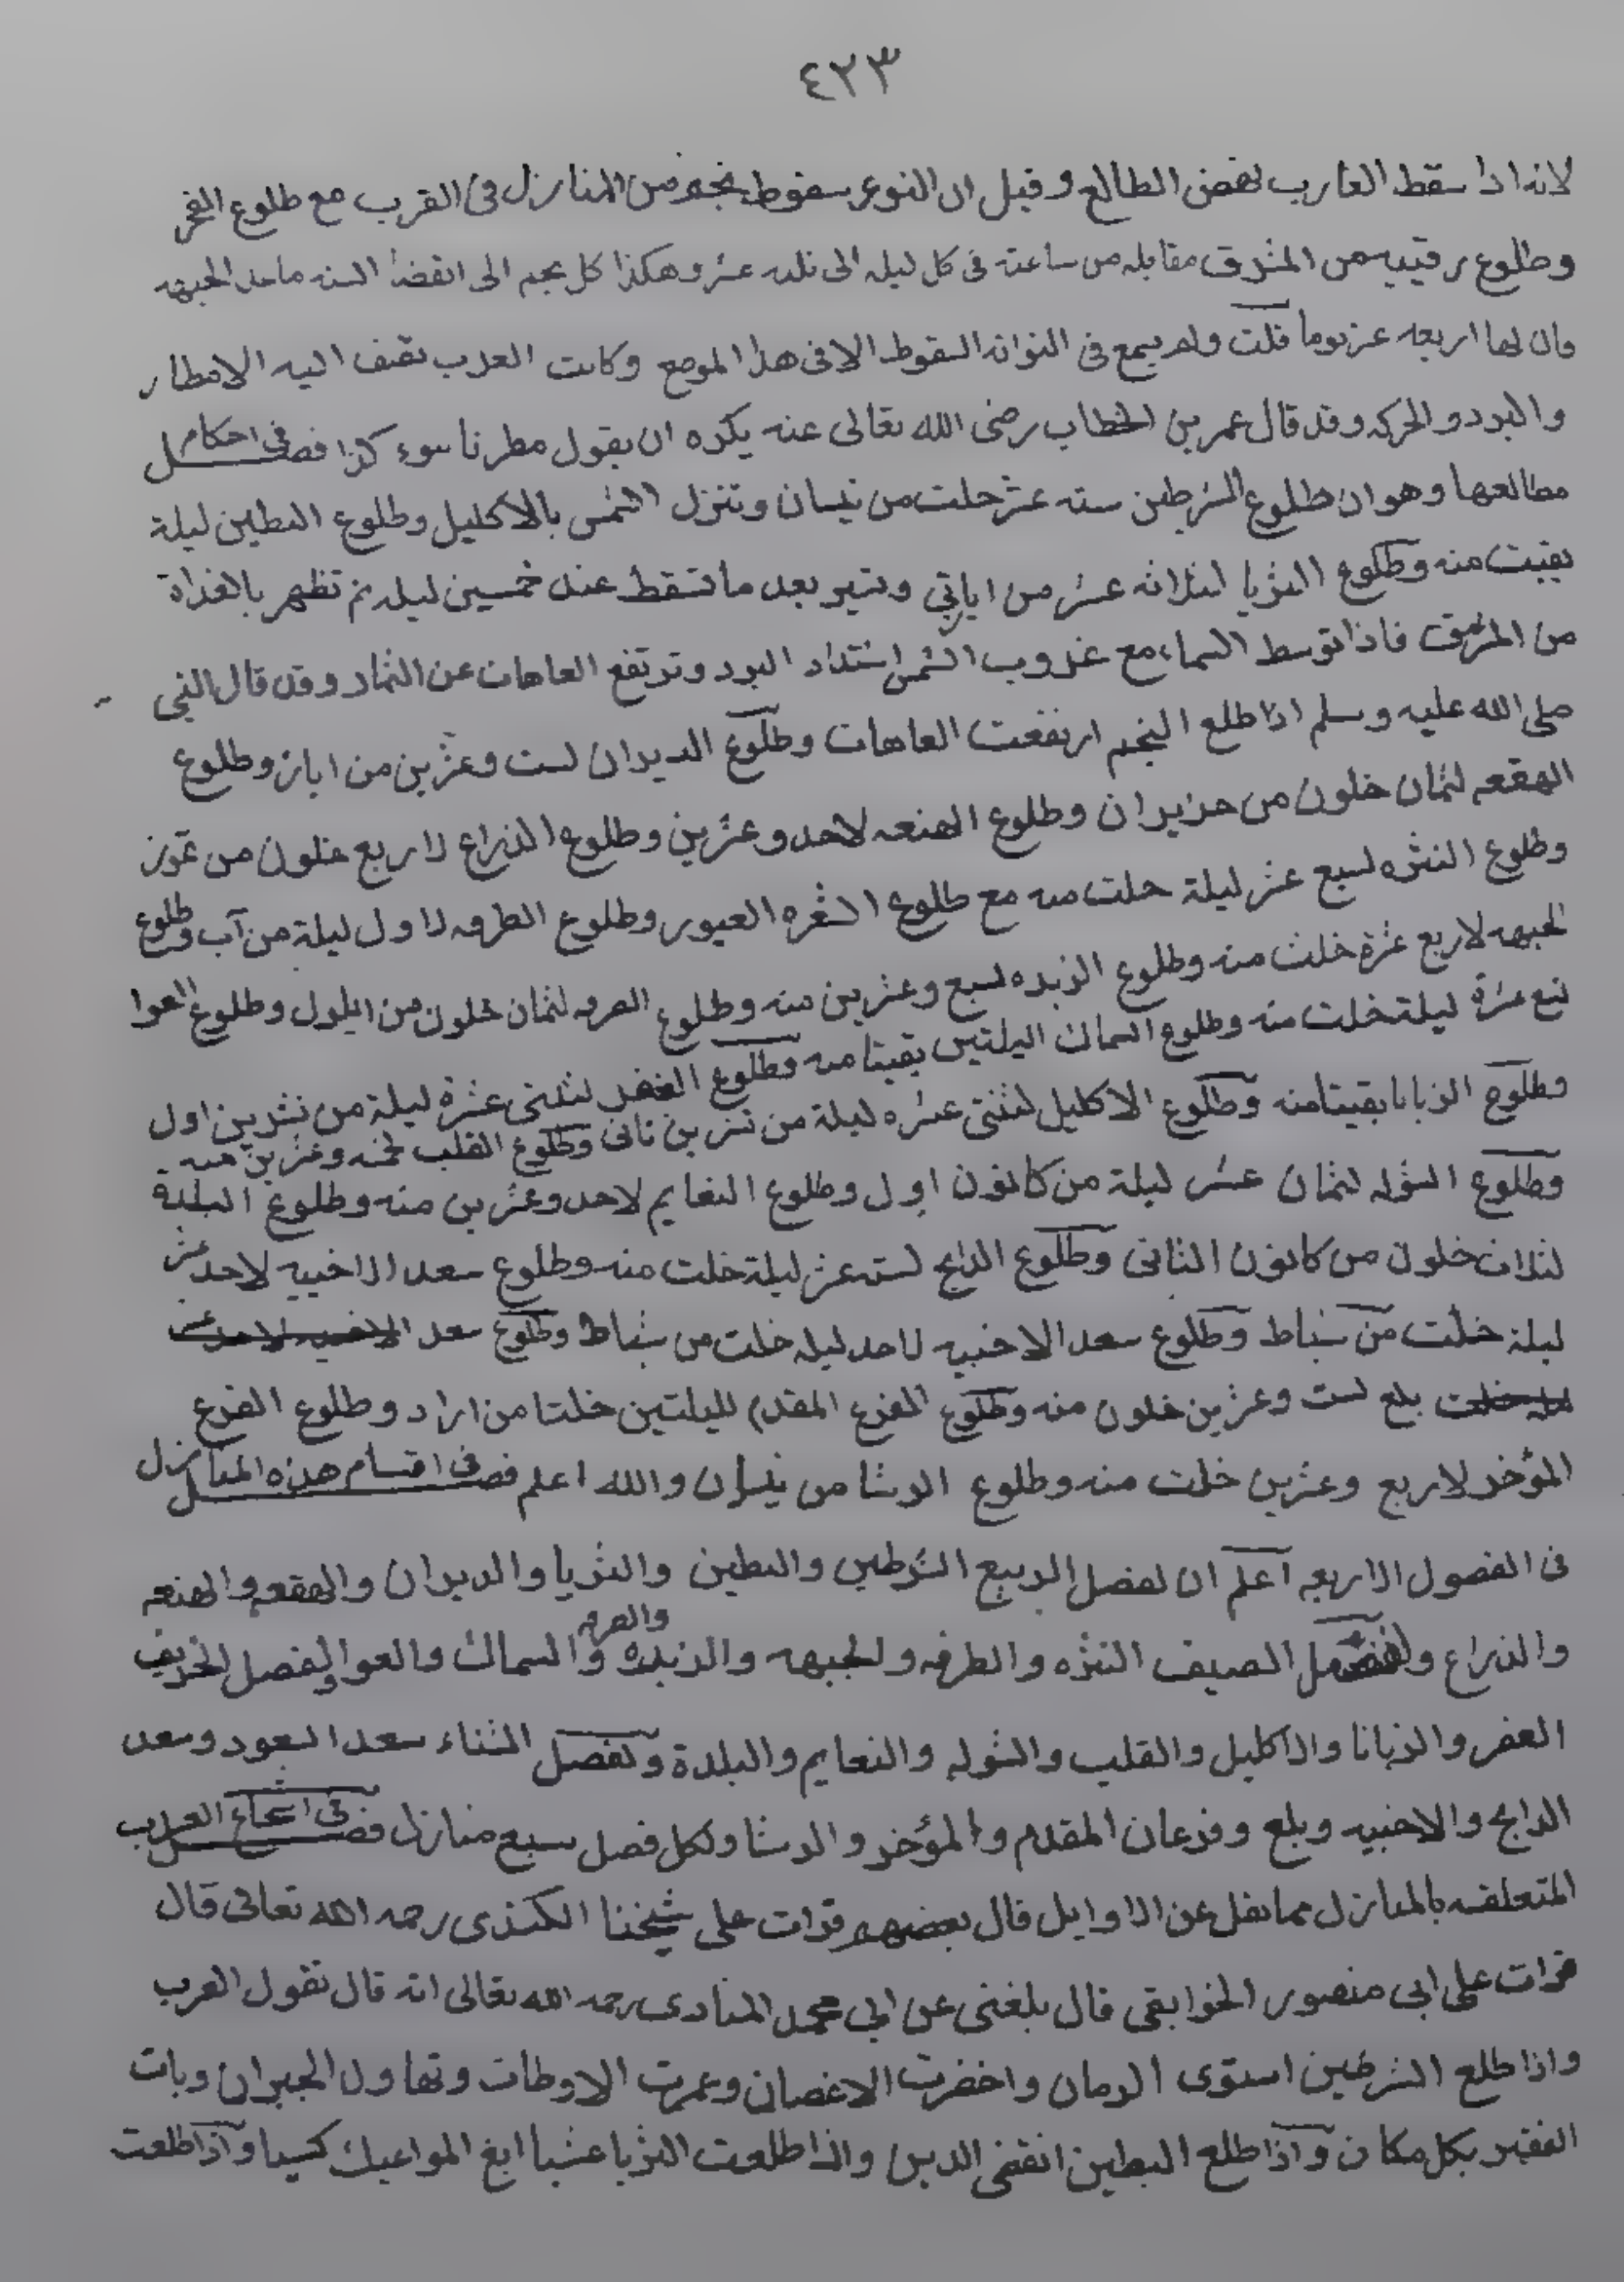 ٤٢٣
لانه اذا سقط الغارب نهض الطالع وقيل ان النوء سقوط نجم من المنازل فى القرب مع طلوع الفجر
وطلوع رقيبه من المشرق مقابله من ساعته فى كل ليله الى ثلثه عشر وهكذا كل نجم الى انقضا السنه ماخلا الجبهه
فان لها اربعه عشر يوما قلت ولم يسمع فى النوانه السقوط الا فى هذا الموضع وكانت العرب تضيف اليه الامطار
والبرد والحركه وقد قال عمر بن الخطاب رضى الله تعالى عنه يكره ان يقول مطرنا بنوء كذا فصل فى احكام
مطالعها وهو ان طلوع الشرطين سته عشر خلت من نيسان وتنزل الشمس بالاكليل وطلوع البطين ليلة
بقيت منه وطلوع الثريا لثلاثه عشر من اياتي وتتير بعد ما تسقط عند خمسين ليله ثم تظهر بالغداة
من المشرق فاذا توسط السماء مع غروب الشمس اشتداد البرد وترتفع العاهات عن الثمار وقد قال النبى
صلى الله عليه وسلم اذا طلع النجم ارتفعت العاهات وطلوع الدبران لست وعشرين من ايار وطلوع
الهقعه لثمان خلون من حزيران وطلوع الهنعه لاحد وعشرين وطلوع الذراع لاربع خلون من تموز
وطلوع النثره لسبع عشر ليلة خلت منه مع طلوع الشعره العبور وطلوع الطرفه لاول ليلة من آب وطلوع
الجبهه لاربع عشرة خلت منه وطلوع الزبده لسبع وعشرين منه وطلوع الصرفه لثمان خلون من ايلول وطلوع العوا
تسع عشرة ليلة خلت منه وطلوع السماك اليلتين بقيتا منه وطلوع الغفر لثنتى عشرة ليلة من تشرين اول
وطلوع الزبانا بقيتا منه وطلوع الاكليل لثنتى عشره ليلة من تشرين ثانى وطلوع القلب لخمسه وعشرين منه
وطلوع الشوله لثمان عشر ليلة من كانون اول وطلوع النعايم لاحد وعشرين منه وطلوع البلدة
لثلاث خلون من كانون الثانى وطلوع الذابح لسته عشر ليلة خلت منه وطلوع سعد الاخبيه لاحد عشر
ليلة خلت من شباط وطلوع سعد الاخبيه لاحد ليله خلت من شباط وطلوع سعد الاخبيه لاحد عشر
ليله خلت بلع لست وعشرين خلون منه وطلوع الفرع المقدم لليلتين خلتا من اراد وطلوع الفرع
المؤخر لاربع وعشرين خلت منه وطلوع الرشا من نيسان والله اعلم فصل فى اقسام هذه المنازل
فى الفصول الاربعه اعلم ان لفصل الربيع الشرطين والبطين والثريا والدبران والهقعه والهنعه
والذراع ولفصل الصيف النثره والطرفه والجبهه والزبده والصرفه والسماك والعوا ولفصل الخريف
الغفر والزبانا والاكليل والقلب والشوله والنعايم والبلدة ولفصل الشتاء سعد السعود وسعد
الذابح والاخبيه وبلع وفرعان المقدم والمؤخر والرشا ولكل فصل سبع منازل فصل فى اسجاع العرب
المتعلقه بالمنازل مما نقل عن الاوايل قال بعضهم قرات على شيخنا الكندى رحمه الله تعالى قال
قرات على ابى منصور الخوابقى قال بلغنى عن ابى محمد المنادى رحمه الله تعالى انه قال تقول العرب
واذا طلع الشرطين استوى الزمان واخضرت الاغصان وعمرت الاوطات وتهاول الجبران وبات
الفقير بكل مكان واذا طلع البطين انقضى الدين واذا طلعت الثريا عشيا ابغ المواعيك كسيا واذا طلعت